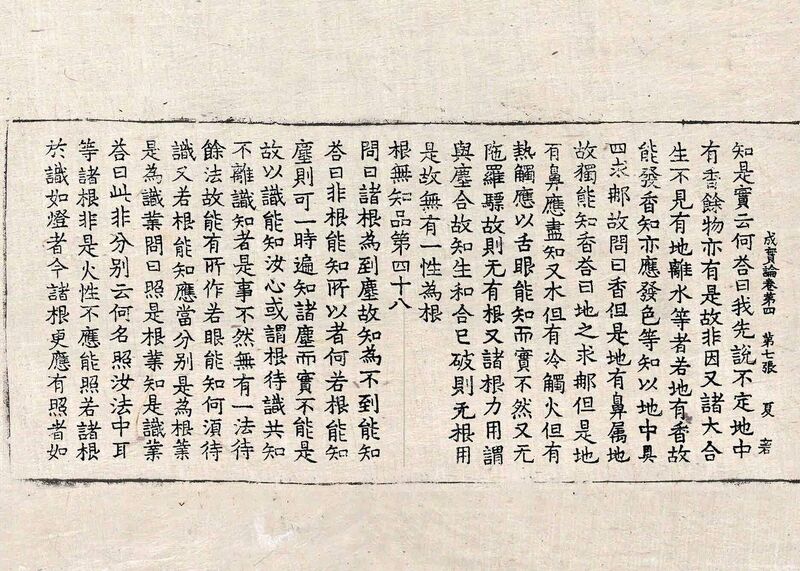 成實論卷第四 第七張 夏
知是實云何荅曰我先說不定地中
有香餘物亦有是故非因又諸大合
生不見有地離水等者若地有香故
能發香知亦應發色等知以地中具
四求郍故問曰香但是地有鼻属地
故獨能知香荅曰地之求郍但是地
有鼻應盡知又水但有冷觸火但有
熱觸應以舌眼能知而實不然又无
陁羅驃故則无有根又諸根力用謂
與塵合故知生和合已破則无根用
是故無有一性為根
根無知品第四十八
問曰諸根為到塵故知為不到能知
荅曰非根能知所以者何若根能知
塵則可一時遍知諸塵而實不能是
故以識能知汝心或謂根待識共知
不離識知者是事不然無有一法待
餘法故能有所作若眼能知何須待
識又若根能知應當分别是為根業
是為識業問曰照是根業知是識業
荅曰此非分别云何名照汝法中耳
等諸根非是火性不應能照若諸根
於識如燈者今諸根更應有照者如